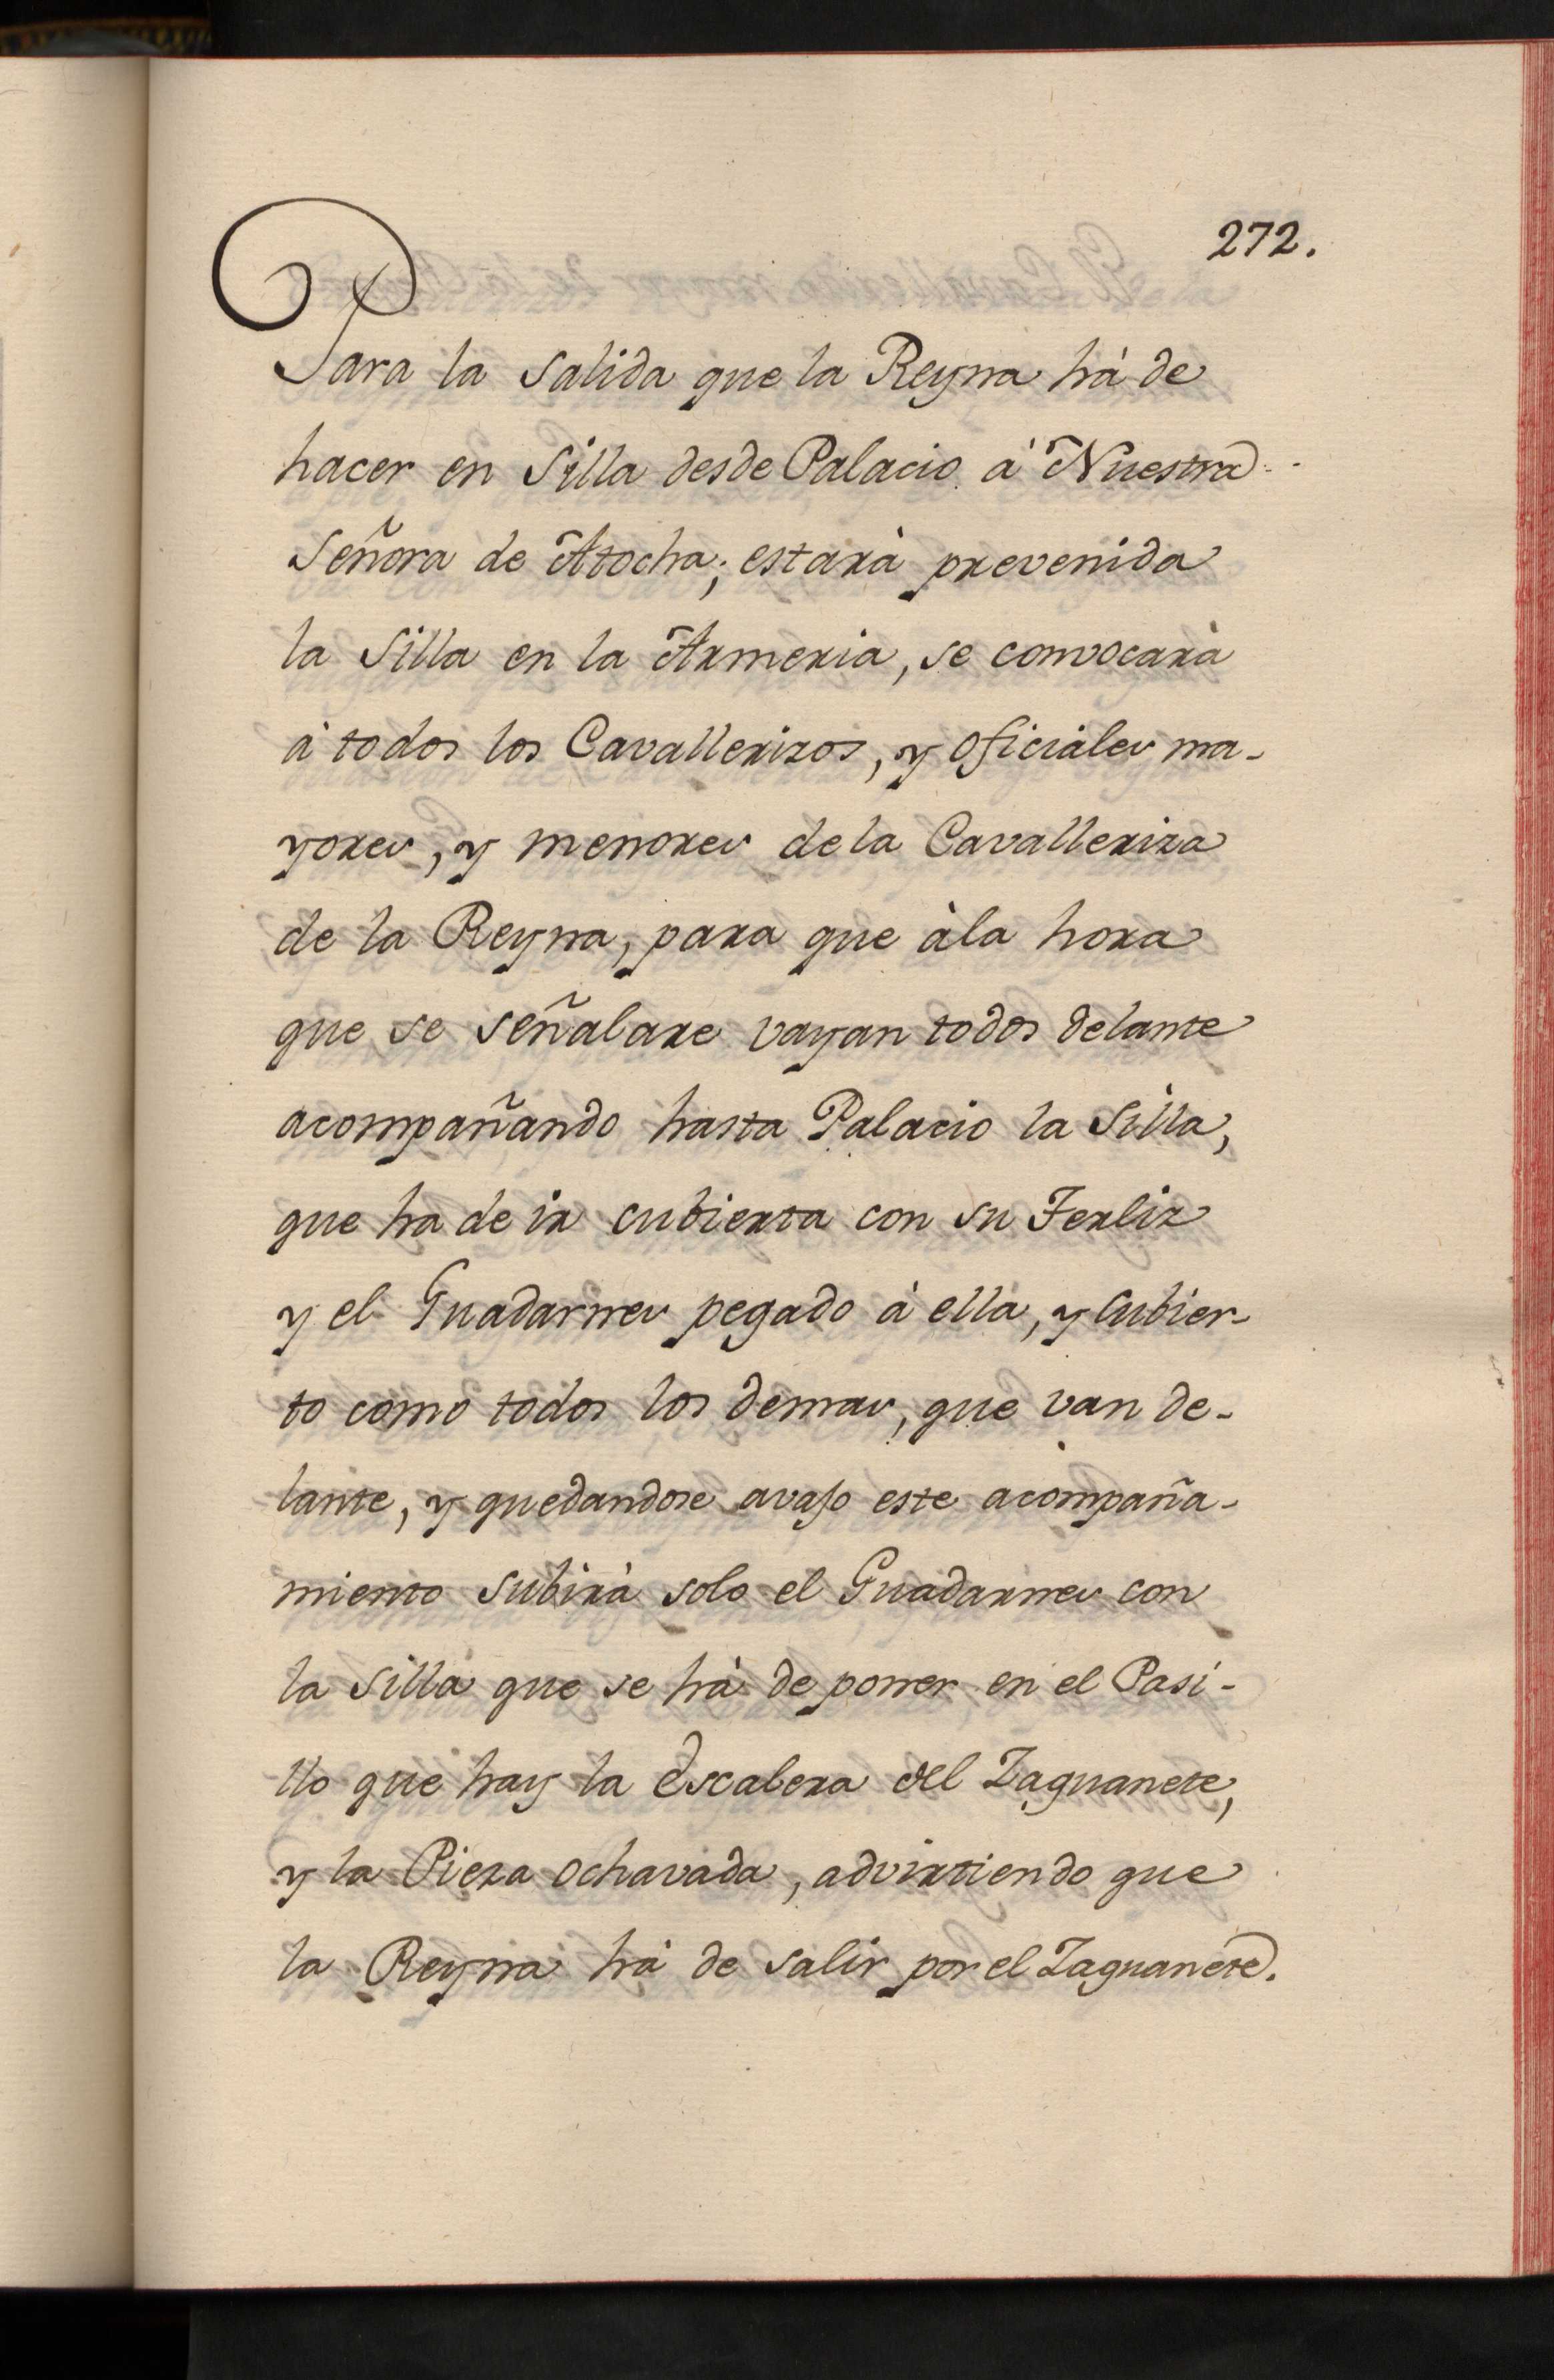 272.
Para la salida que la Reyna hà de
hacer en Silla desde Palacio à Nuestra
Señora de Atocha; estarà prevenida
la Silla en la Armeria, se convocarà
à todos los Cavallerizos, y oficiales ma-
yores, y menores de la Cavalleriza
de la Reyna, para que àla hora
que se señalare vayan todos delante
acompañando hasta Palacio la Silla,
que ha de ir cubierta con su Ferliz
y el Guadarnes pegado à ella, y Cubier-
to como todos los demas, que van de-
lante, y quedandose avajo este acompaña-
miento subirà solo el Guadarnes con
la Silla que se hà de poner en el Pasi-
llo que hay la Escalera del Zaguanete,
y la Pieza ochavada, advirtiendo que
la Reyna hà de salir por el Zaguanete.